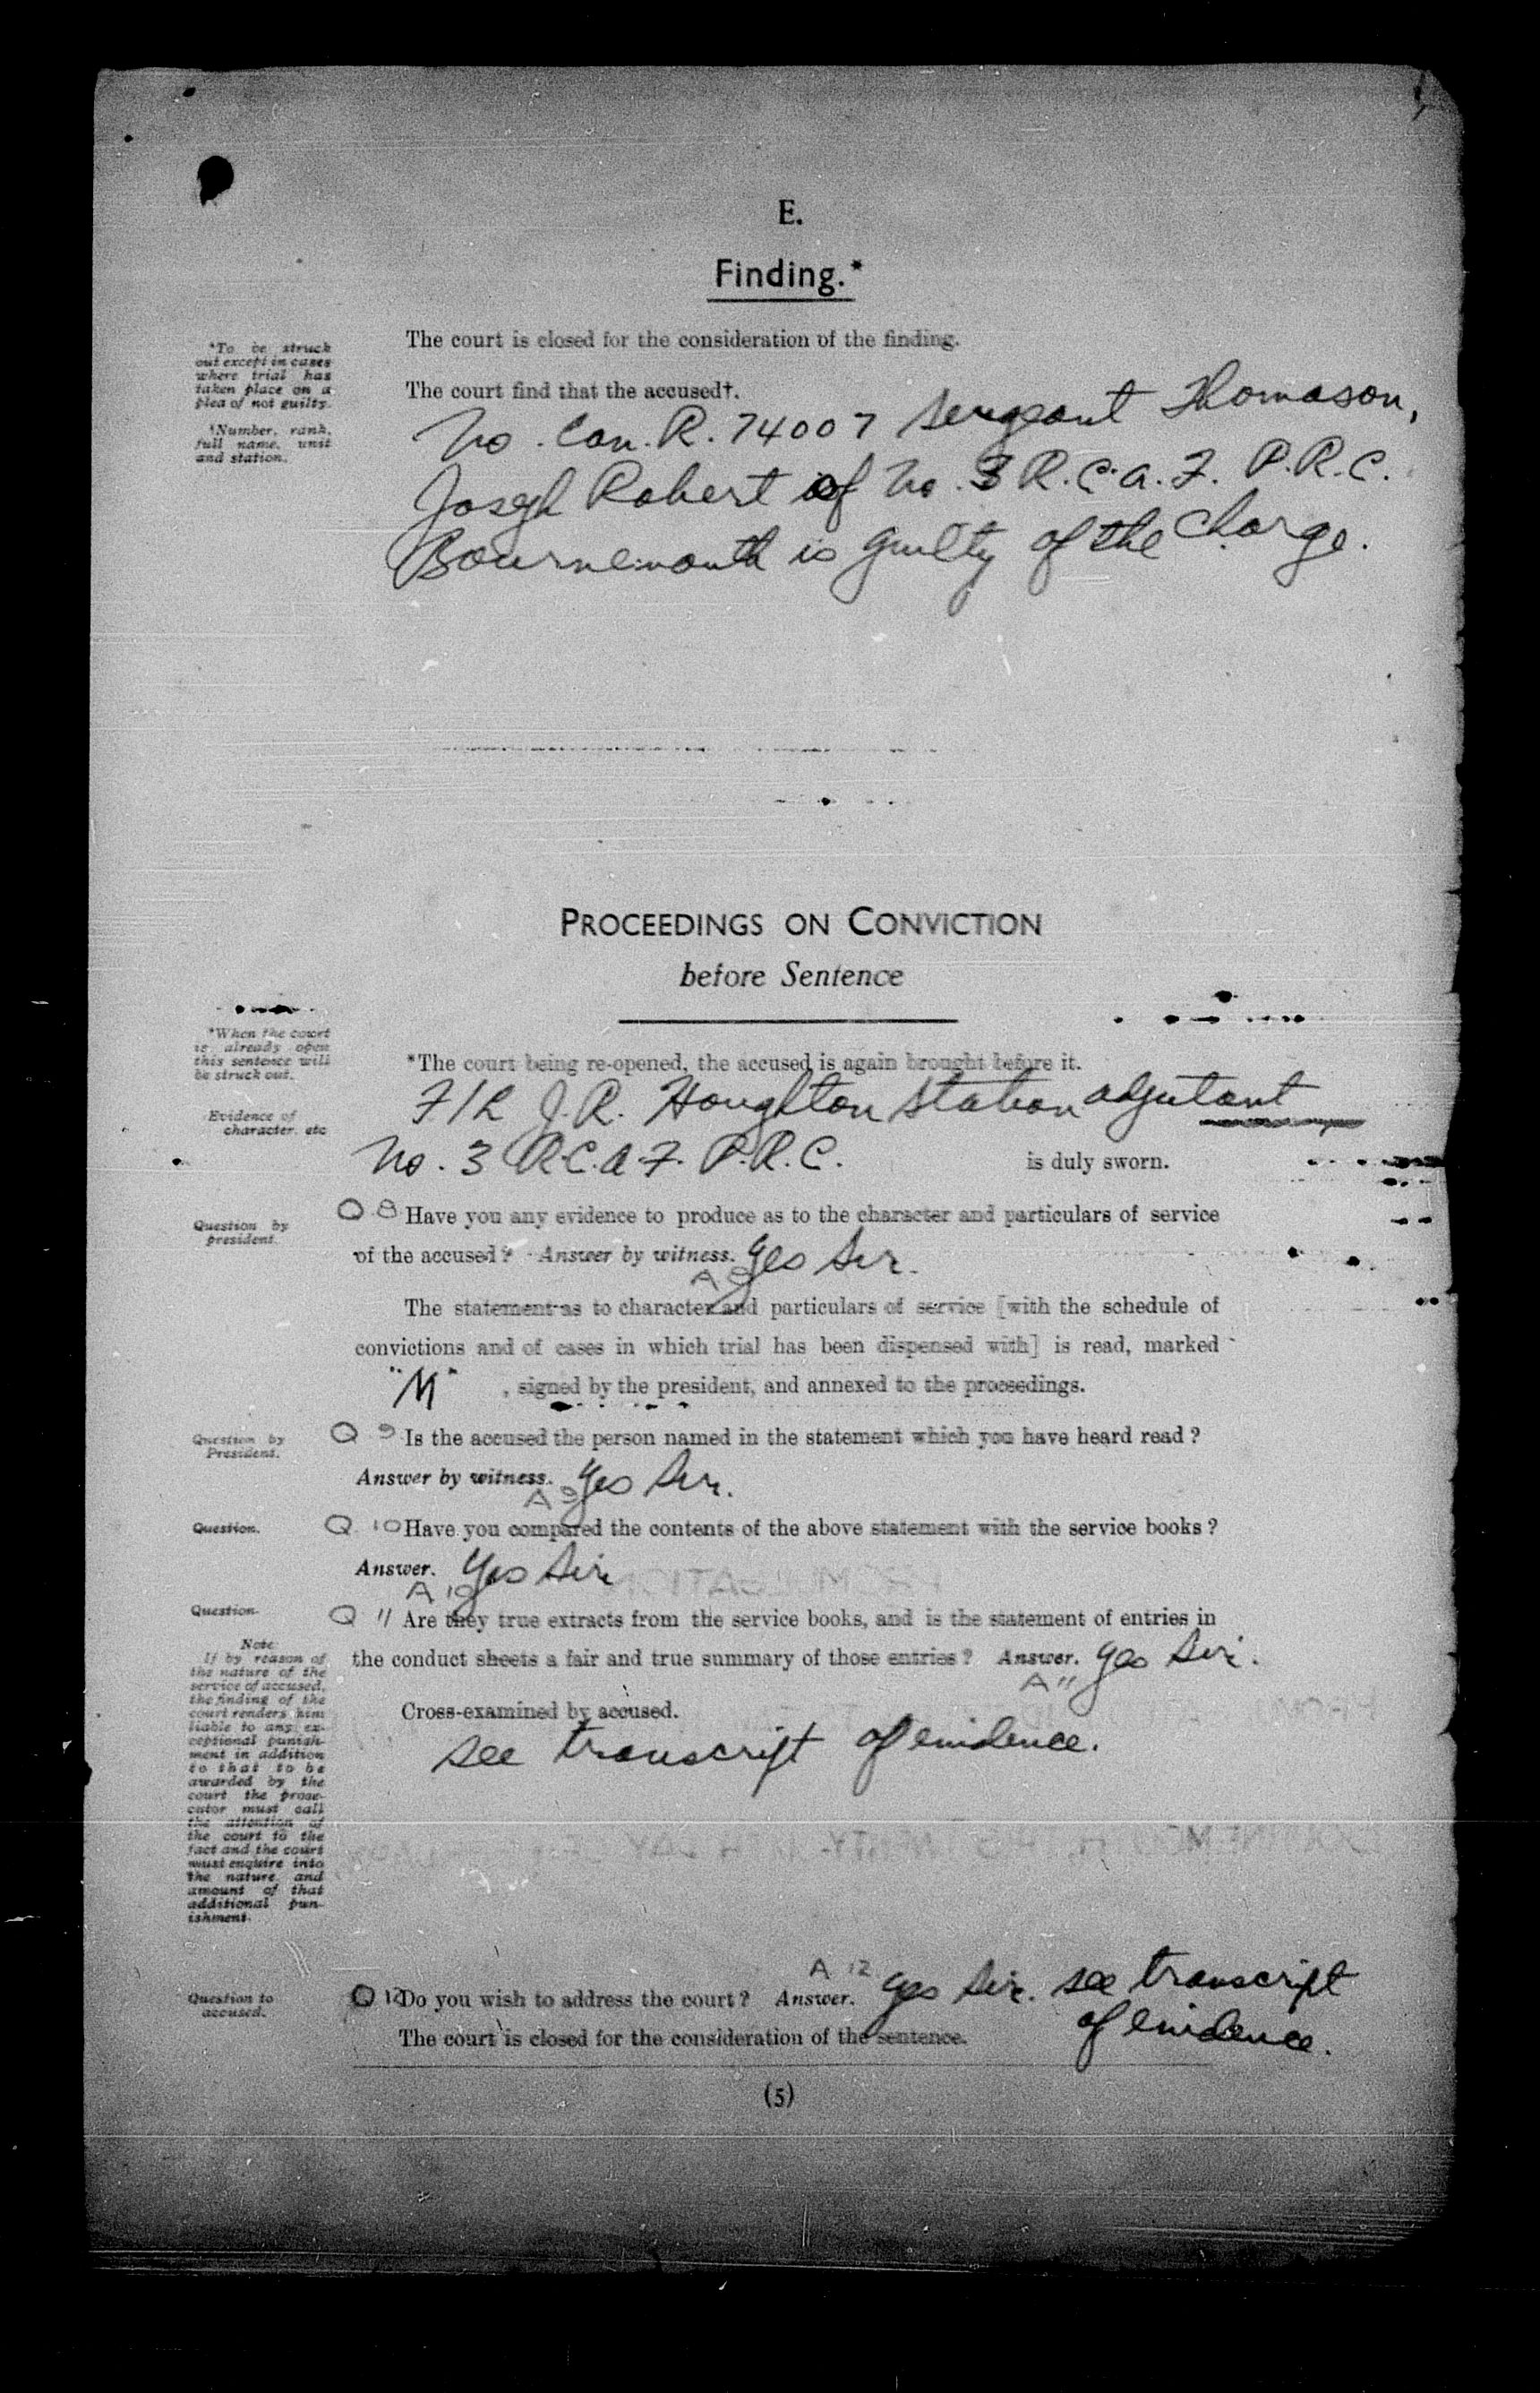 E.
Finding.*
*To be struck
out except in cases
where trial has
taken place on a
plea of not guilty.
The court is closed for the consideration of the finding.
The court find that the accused†.
†Number, rank,
full name, unit
and station.
No. Can. R. 74007 Sergeant Thomason,
Joseph Robert of No. 3 R.C.A.F. P.R.C.
Bournemouth is guilty of the charge.
PROCEEDINGS ON CONVICTION
before Sentence
*When the court
is already open
this sentence will
be struck out.
*The court being re-opened, the accused is again brought before it.
Evidence of
character, etc
F/L J.R. Houghton Station adjutant
No. 3 R.C.A.F. P.R.C. is duly sworn.
Question by
president.
Q 8 Have you any evidence to produce as to the character and particulars of service
of the accused? Answer by witness. Yes Sir.
A 8
The statement as to character and particulars of service [with the schedule of
convictions and of cases in which trial has been dispensed with] is read, marked
"M" , signed by the president, and annexed to the proceedings.
Question by
President.
Q 9 Is the accused the person named in the statement which you have heard read?
Answer by witness. Yes Sir.
A 9
Question.
Q 10 Have you compared the contents of the above statement with the service books?
Answer. Yes Sir
A 10
Question.
Q 11 Are they true extracts from the service books, and is the statement of entries in
the conduct sheets a fair and true summary of those entries? Answer. Yes Sir.
A 11
Note
If by reason of
the nature of the
service of accused,
the finding of the
court renders him
liable to any ex-
ceptional punish-
ment in addition
to that to be
awarded by the
court the prose-
cutor must call
the attention of
the court to the
fact and the court
must enquire into
the nature and
amount of that
additional pun-
ishment.
Cross-examined by accused.
See transcript of evidence.
Question to
accused.
A 12
Q 12 Do you wish to address the court? Answer. Yes Sir. See transcript
of evidence.
The court is closed for the consideration of the sentence.
(5)